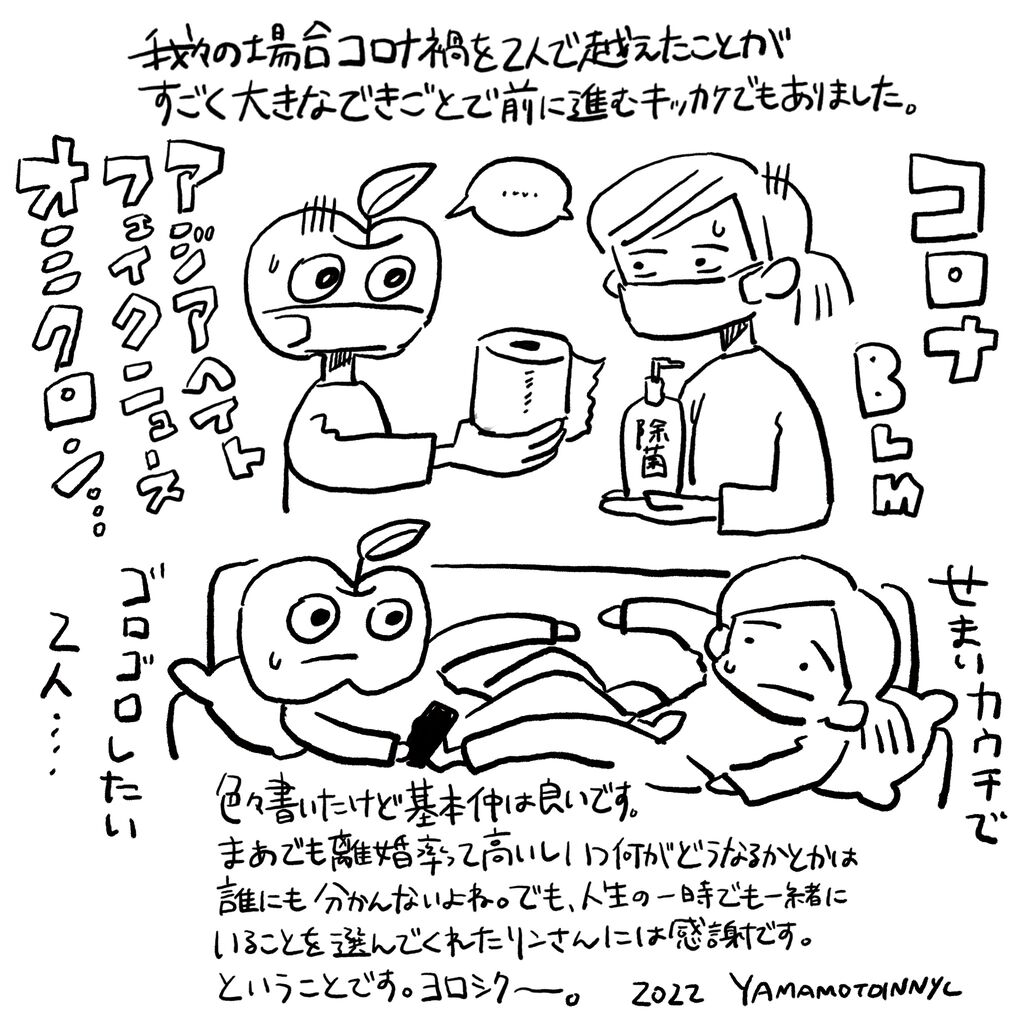 我々の場合コロナ禍を2人で越えたことが
すごく大きなできごとで前に進むキッカケでもありました。
コロナ
BLM
....
除菌
アジアヘイト
フェイクニュース
オミクロン...
せまいカウチで
ゴロゴロしたい
2人....
色々書いたけど基本仲は良いです。
まあでも離婚率って高いしいつ何がどうなるかとかは
誰にも分かんないよね。でも、人生の一時でも一緒に
いることを選んでくれたリンさんには感謝です。
ということです。ヨロシクー。
2022 YAMAMOTOINNYC